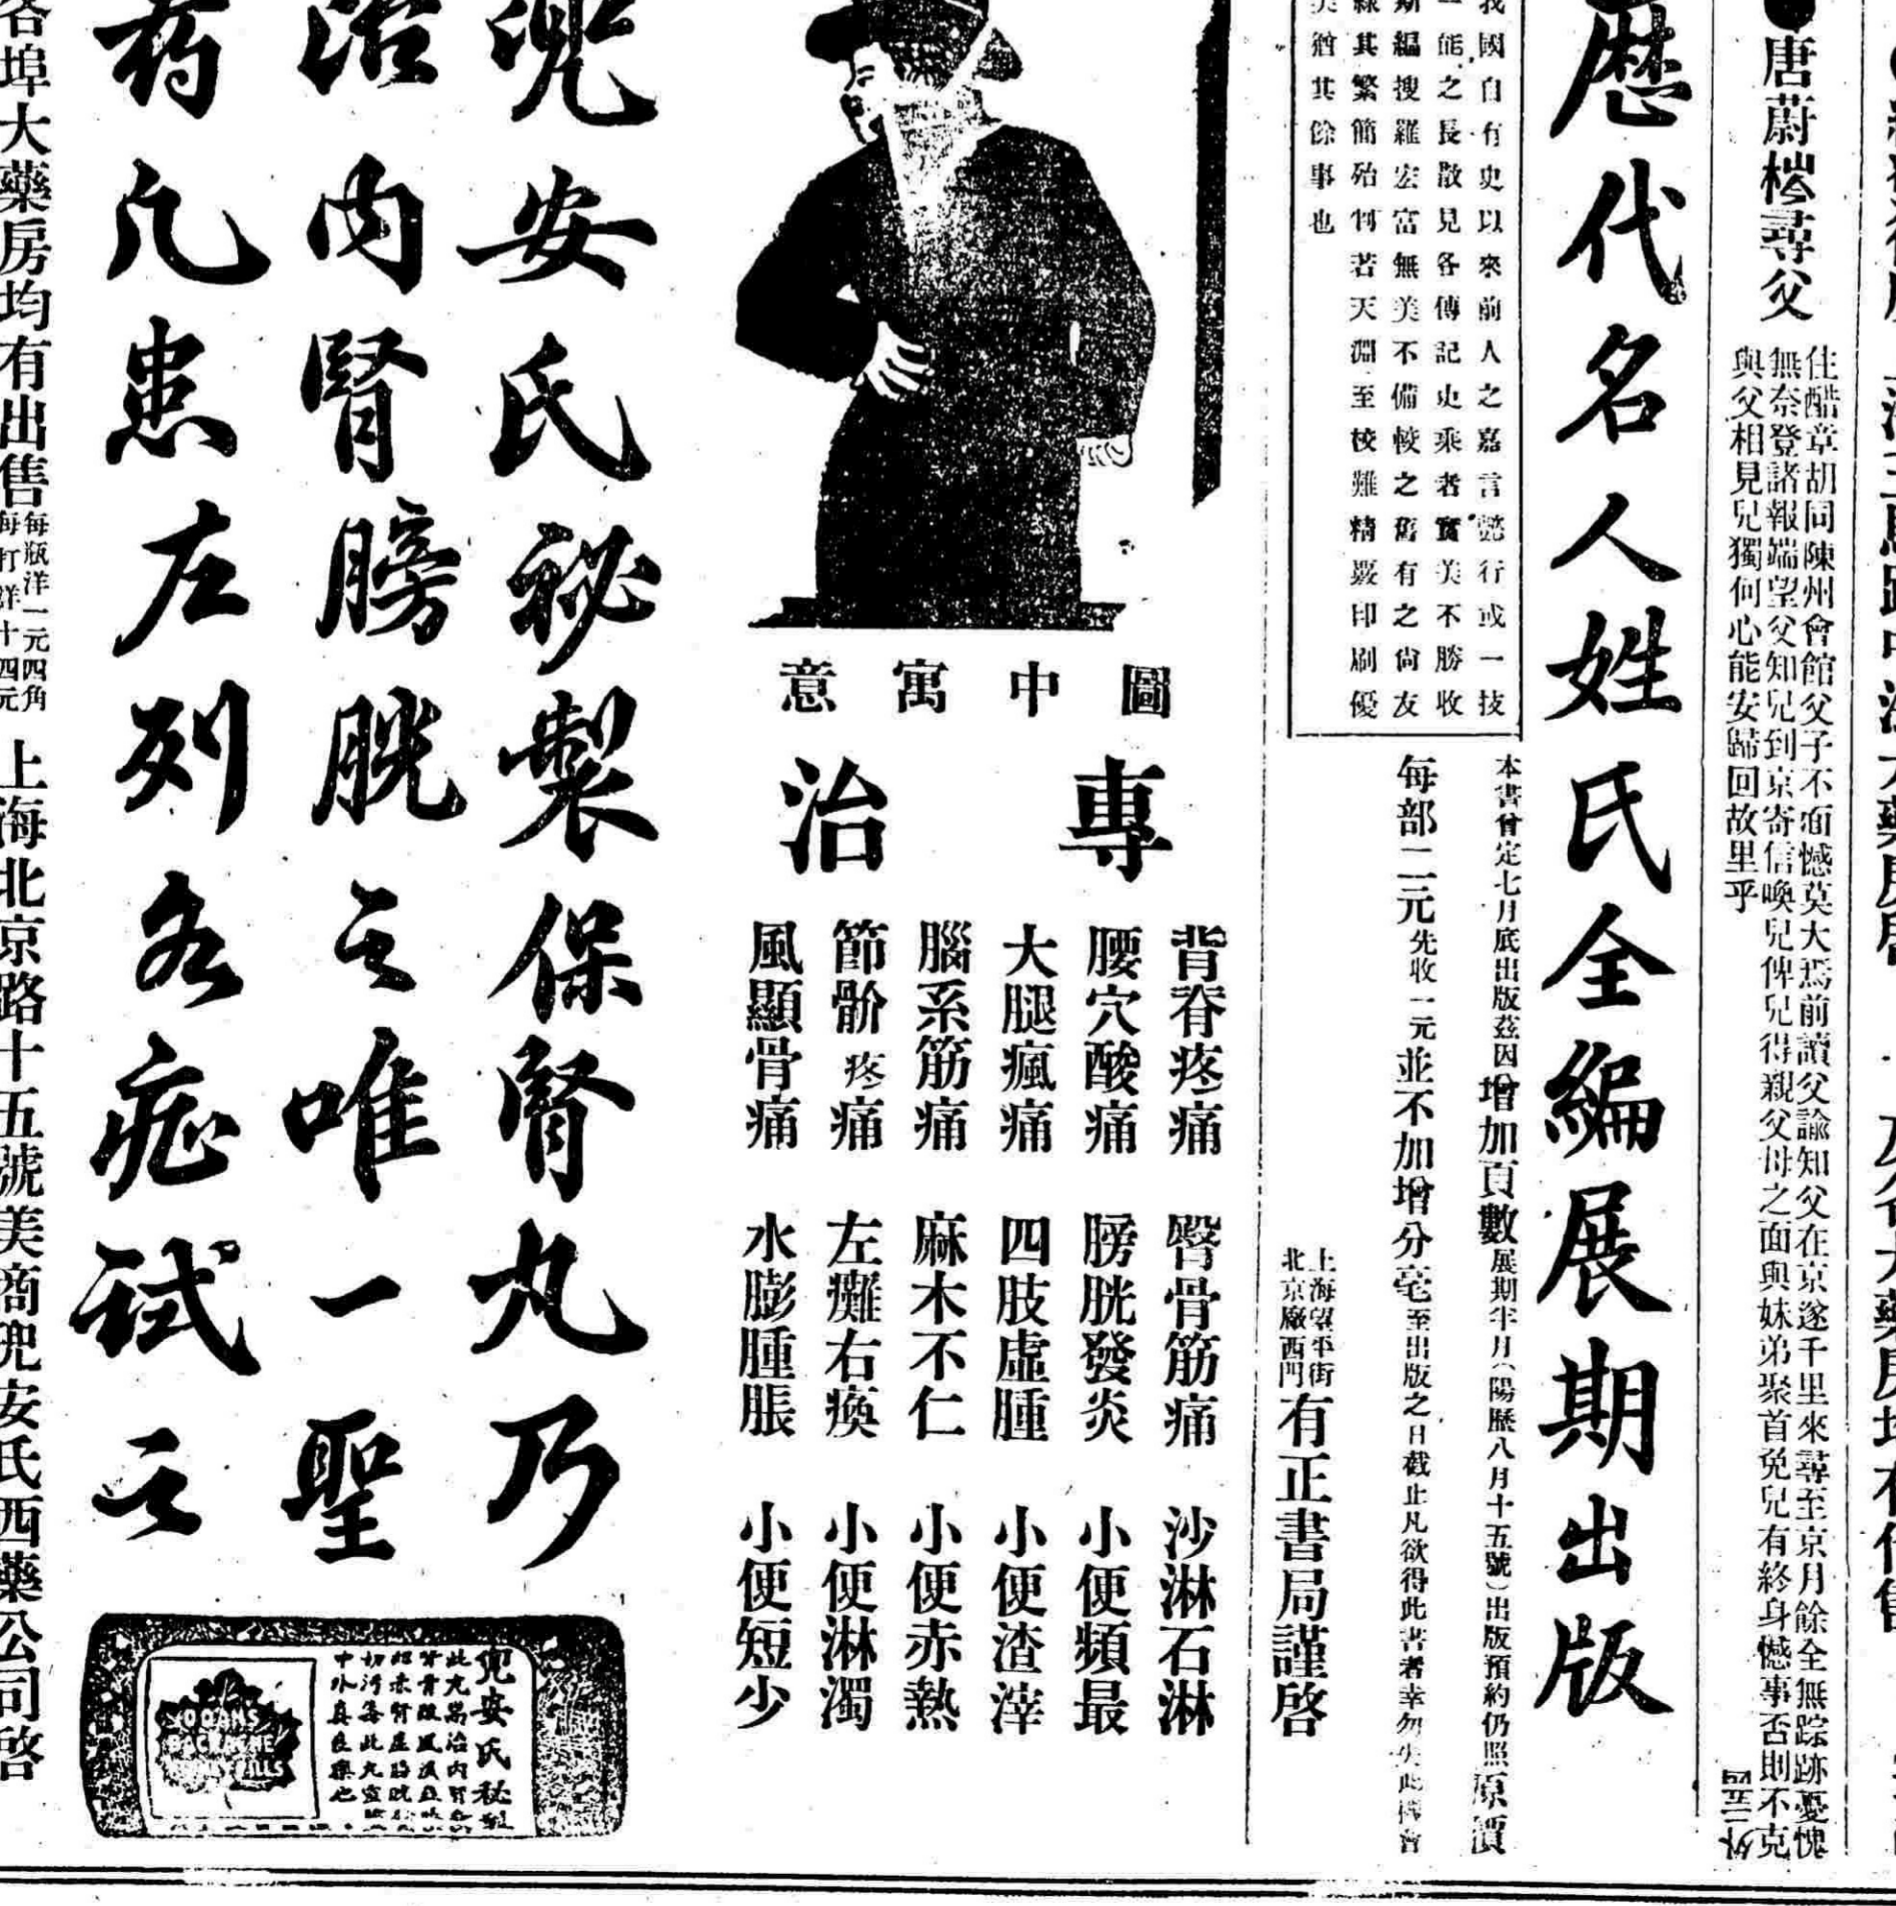 唐蔚梣尋父
住醋章胡同陳州會館父子不面憾莫大焉前讀父諭知父在京遂千里來尋至京月餘全無踪跡憂愧
無奈登諸報端望父知兒到京寄信喚兒俾兒得親父母之面與妹弟聚首免兒有終身憾事否則不克
與父相見兒獨何心能安歸回故里乎
歷代名人姓氏全編展期出版
我國自有史以來前人之嘉言懿行或一技
一能之長散見各傳記史乘者實美不勝收
斯編搜羅宏富無美不備較之舊有之尚友
錄其繁簡殆判若天淵至校難精嚴印刷優
美猶其餘事也
本書曾定七月底出版茲因增加頁數展期半月(陽歷八月十五號)出版預約仍照原價
每部二元先收一元並不加增分毫至出版之日截止凡欲得此書者幸勿失此機會
上海望平街
北京廠西門
有正書局謹啓
圖中寓意
專治
背脊疼痛 臀骨筋痛 沙淋石淋
腰穴酸痛 膀胱發炎 小便頻最
大腿瘋痛 四肢虛腫 小便渣滓
腦系筋痛 麻木不仁 小便赤熱
節骱疼痛 左癱右瘓 小便淋濁
風顯骨痛 水膨腫脹 小便短少
兜安氏祕製保腎丸乃
治內腎膀胱之唯一聖
药凡患左列各症試之
兜安氏秘製
各埠大藥房均有出售每瓶洋一元四角每打洋十四元 上海北京路十五號美商兜安氏西藥公司啓